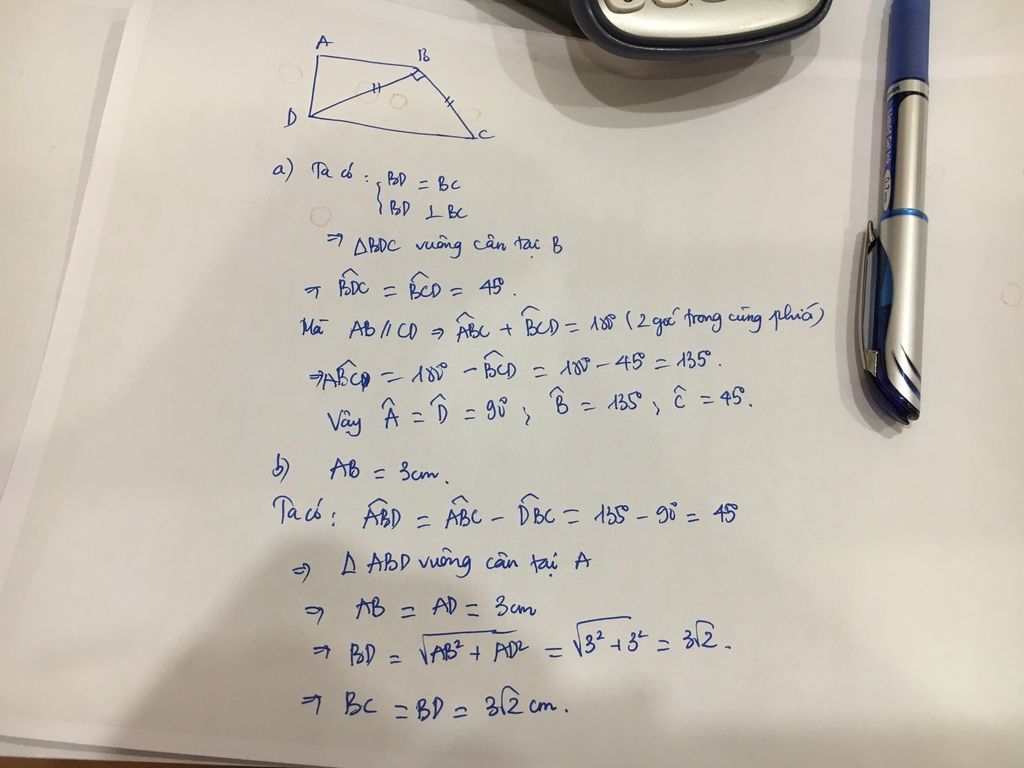 A
B
D
C
a) Ta có : { BD = BC
BD ⊥ BC
⇒ ΔBDC vuông cân tại B
⇒ BDC^ = BCD^ = 45°.
Mà AB // CD ⇒ ABC^ + BCD^ = 180° (2 góc trong cùng phía)
⇒ ABCD^ = 180° - BCD^ = 180° - 45° = 135°.
Vậy Â = D^ = 90°, B^ = 135°, Ĉ = 45°.
b) AB = 3cm.
Ta có: ABD^ = ABC^ - DBC^ = 135° - 90° = 45°
⇒ Δ ABD vuông cân tại A
⇒ AB = AD = 3cm
⇒ BD = √(AB² + AD²) = √(3² + 3²) = 3√2.
⇒ BC = BD = 3√2 cm.
0.7